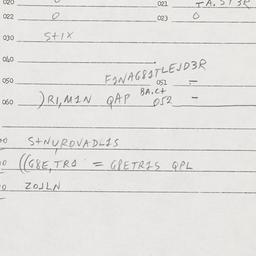 020 0 021 TA.ST3R
022 0 023 0
030 STIX
040
F1NAG81TLEJD3R
050 051 –
BA.Ct
060 )RI,M1N QAP 052 –
S+NUROVADL1S
((G8E,TR1 = G8ETR1S QPL
ZOJLN